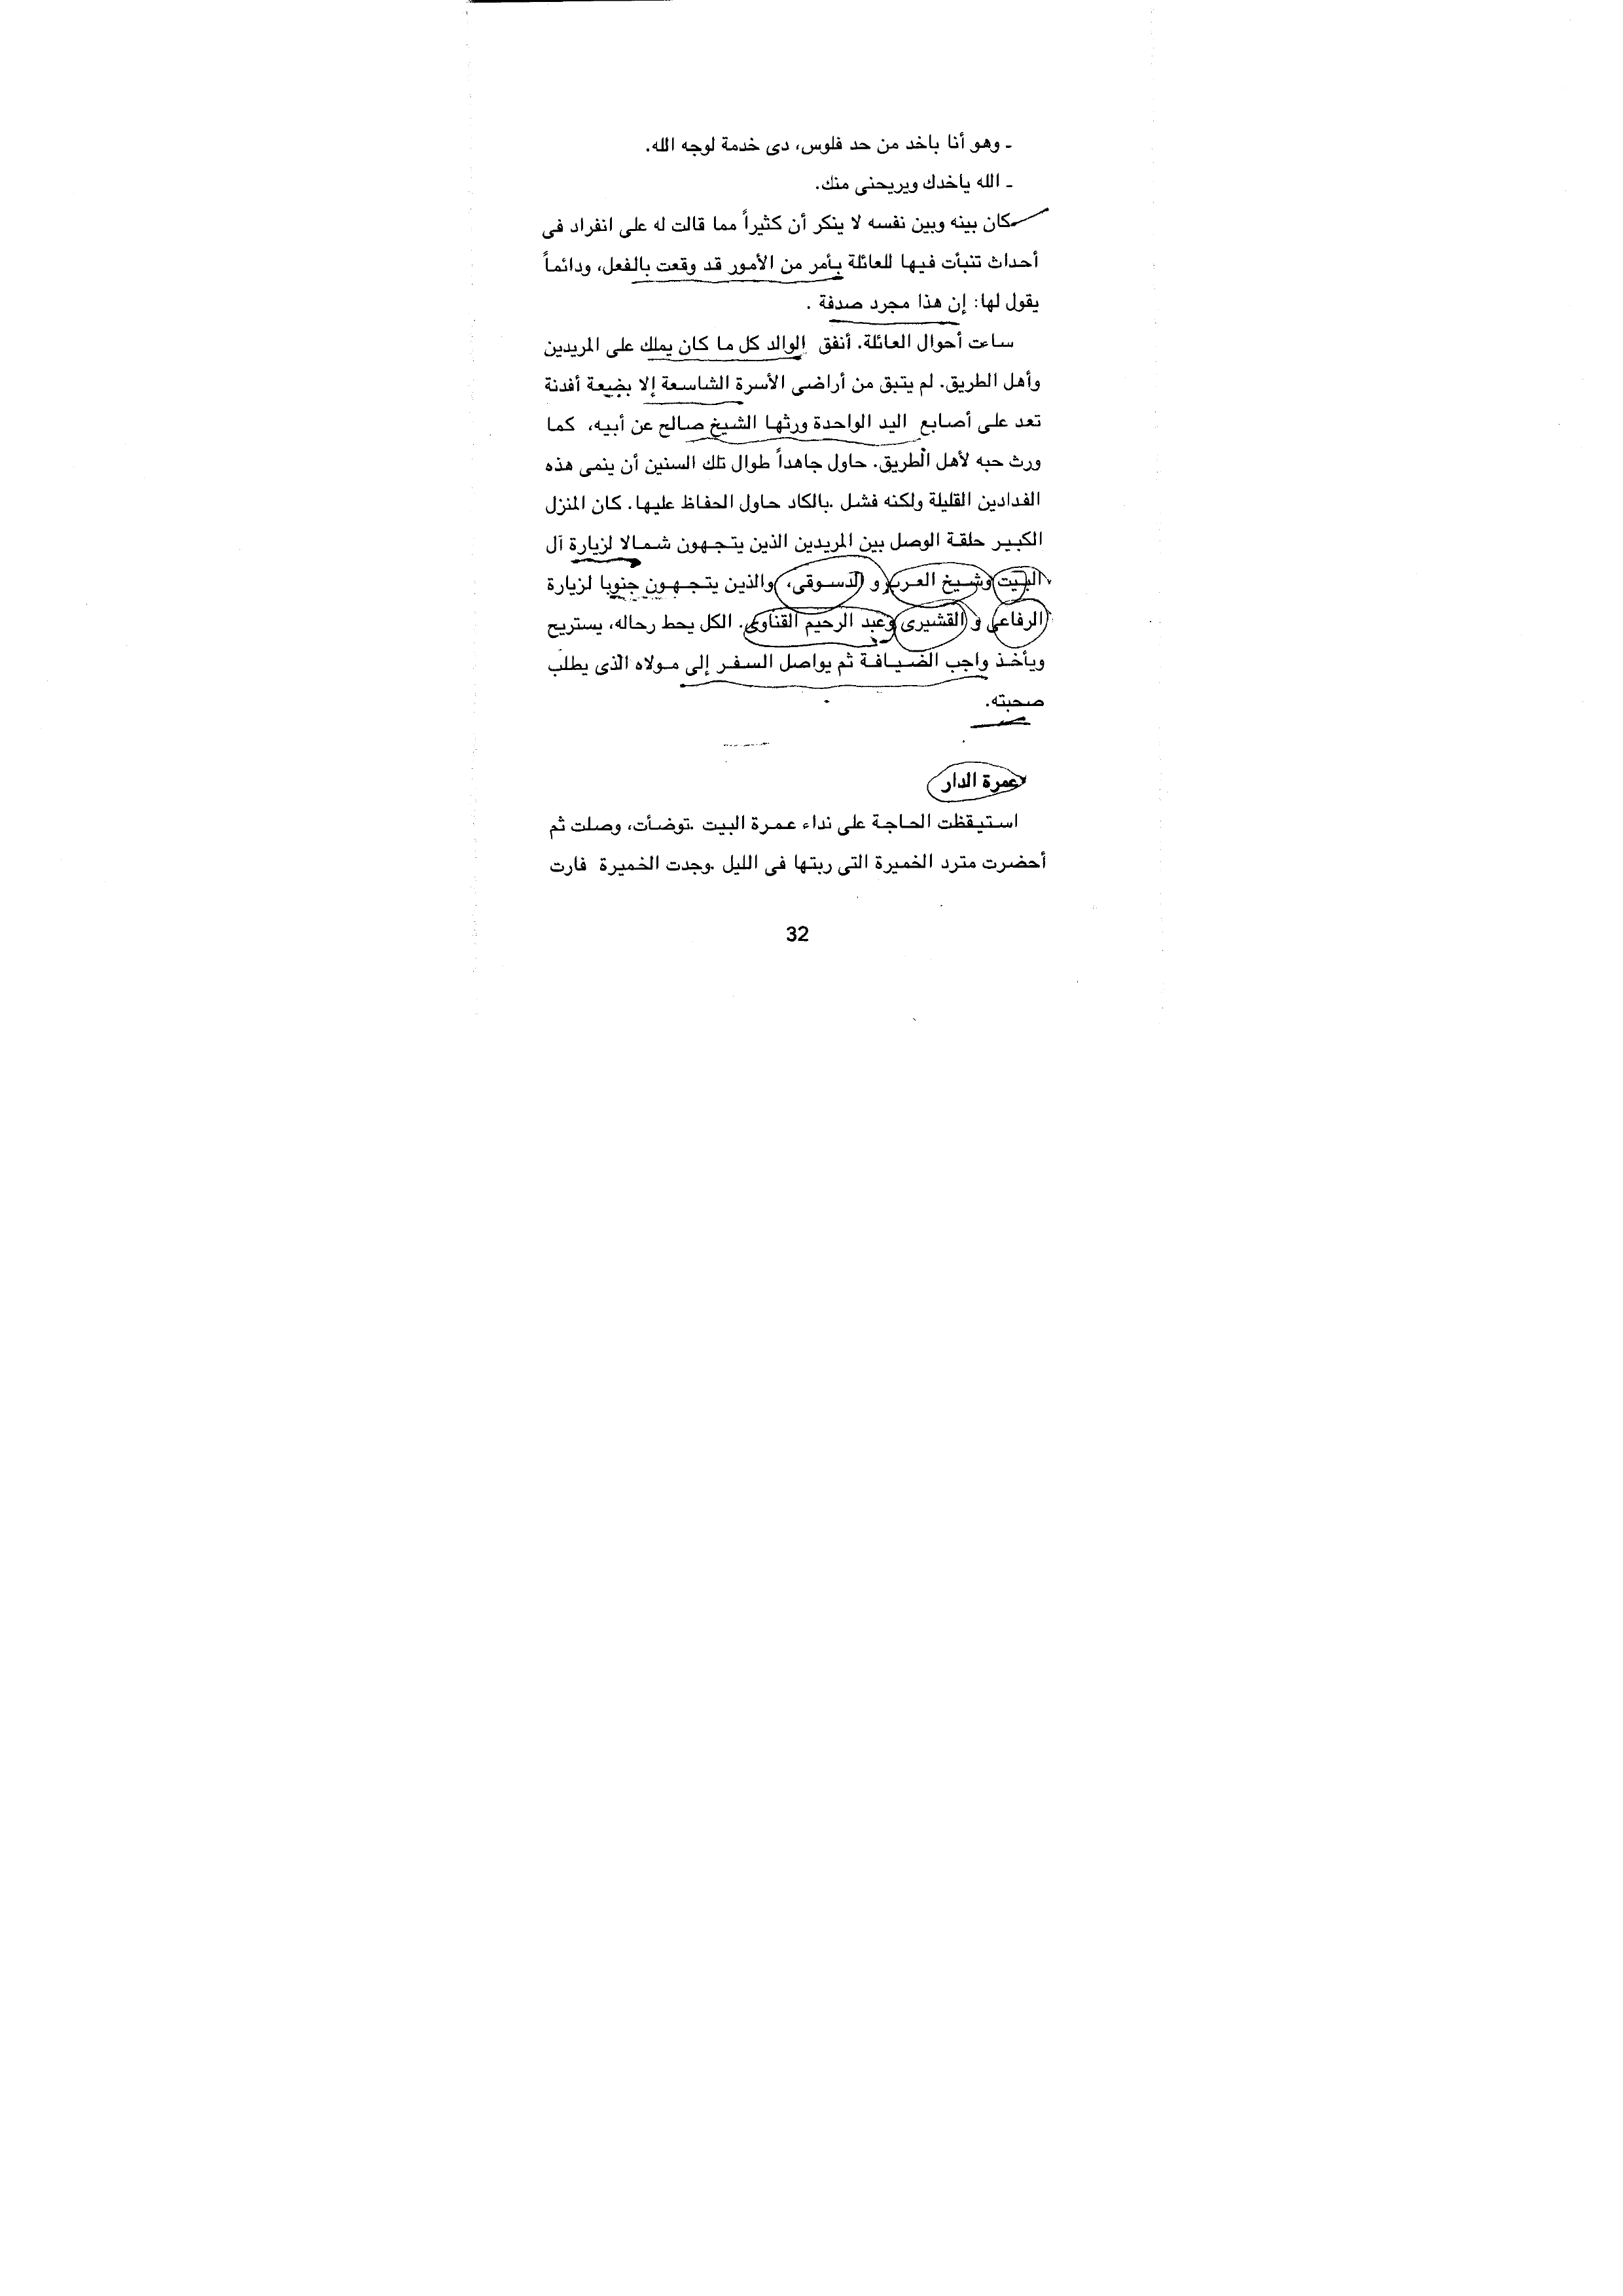 ـ وهو أنا باخد من حد فلوس، دى خدمة لوجه الله.
ـ الله ياخدك ويريحنى منك.
كان بينه وبين نفسه لا ينكر أن كثيراً مما قالت له على انفراد فى
أحداث تنبأت فيها للعائلة بأمر من الأمور قد وقعت بالفعل، ودائماً
يقول لها: إن هذا مجرد صدفة .
ساءت أحوال العائلة. أنفق الوالد كل ما كان يملك على المريدين
وأهل الطريق. لم يتبق من أراضى الأسرة الشاسعة إلا بضيعة أفدنة
تعد على أصابع اليد الواحدة ورثها الشيخ صالح عن أبيه، كما
ورث حبه لأهل الطريق. حاول جاهداً طوال تلك السنين أن ينمى هذه
الفدادين القليلة ولكنه فشل .بالكاد حاول الحفاظ عليها. كان المنزل
الكبير حلقة الوصل بين المريدين الذين يتجهون شمالا لزيارة آل
البيت وشيخ العرب و الدسوقى، والذين يتجهون جنوبا لزيارة
الرفاعى و القشيرى وعبد الرحيم القناوى. الكل يحط رحاله، يستريح
ويأخذ واجب الضيافة ثم يواصل السفر إلى مولاه الذى يطلب
صحبته.
عمرة الدار
استيقظت الحاجة على نداء عمرة البيت .توضأت، وصلت ثم
أحضرت مترد الخميرة التى ربتها فى الليل .وجدت الخميرة فارت
32